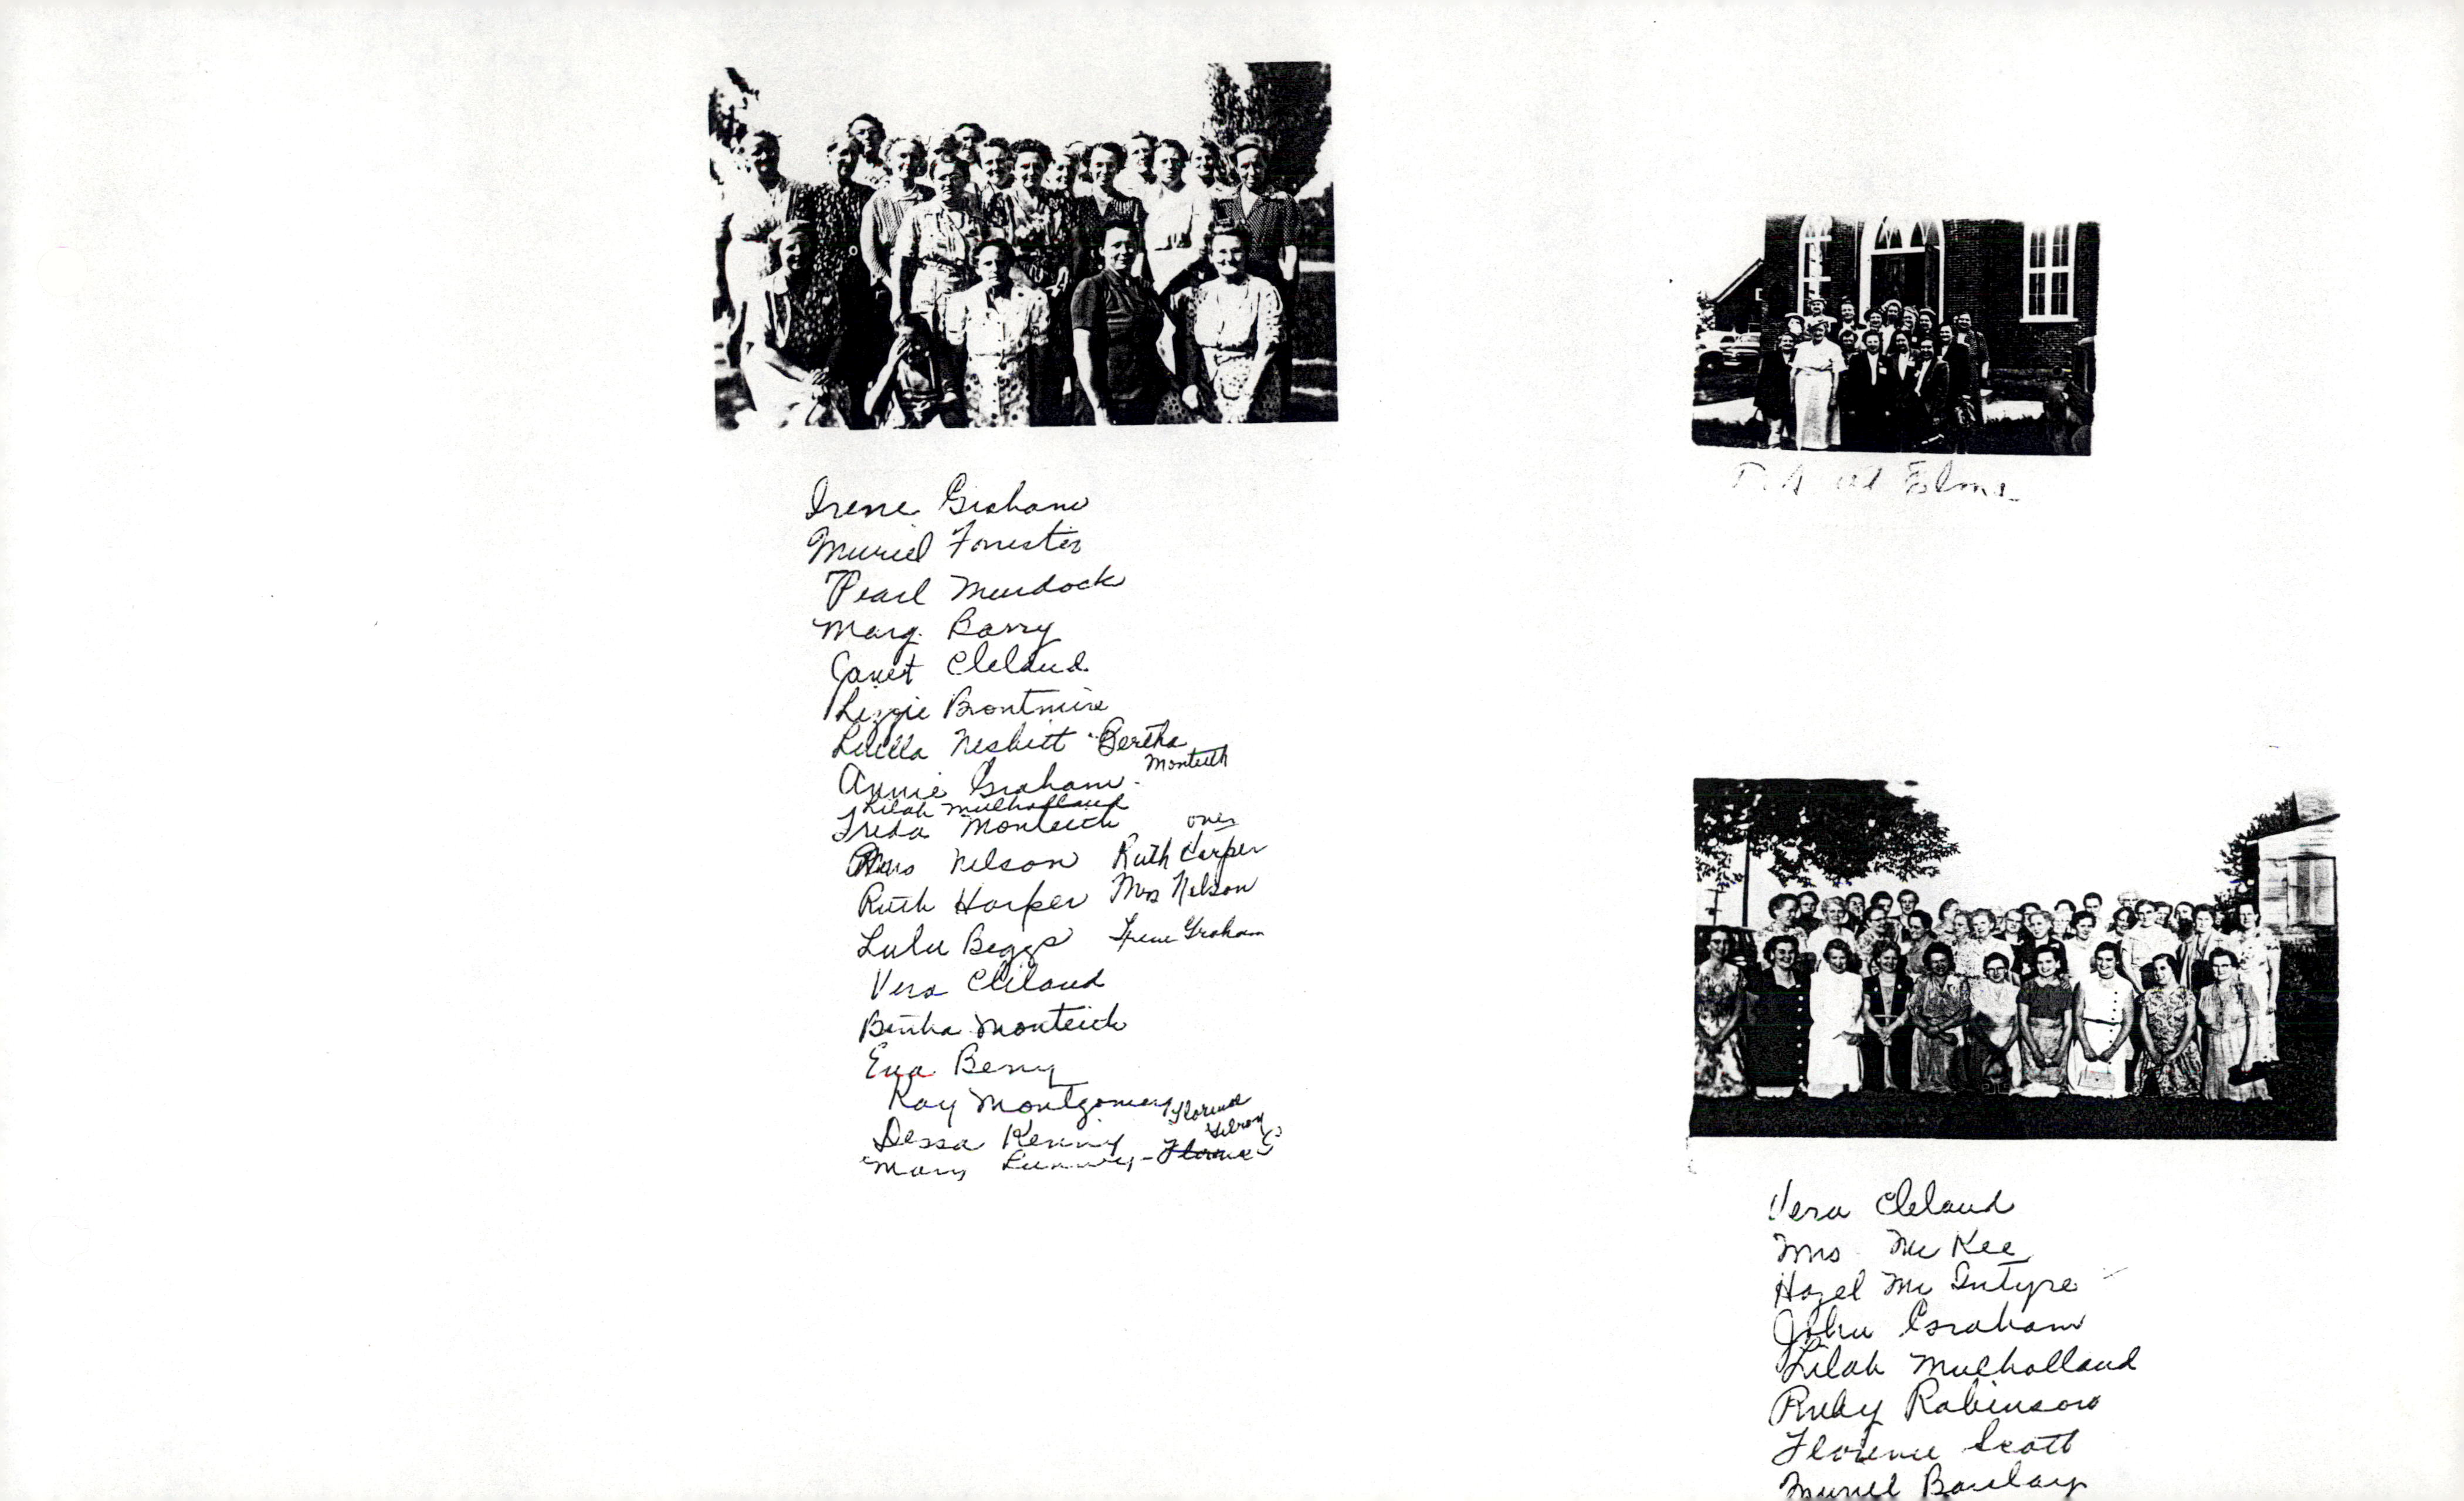 Irene Graham
Muriel Forrester
Pearl Murdock
Marg. Barry
Janet Cleland
Lizzie Brontmire
Luella Nesbitt Bertha
Monteith
Annie Graham
Lilah Mulholland
Freda Monteith over
Mrs Nelson Ruth Harper
Ruth Harper Mrs Nelson
Lulu Beggs Irene Graham
Vera Cleland
Bertha Monteith
Eva Berry
Kay Montgomery Florence
Dessa Kenny Gilroy
Mary - Florence
at Elma
Vera Cleland
Mrs McKee
Hazel McIntyre
John Graham
Lilah Mulholland
Ruby Robinson
Florence Scott
Muriel Barclay